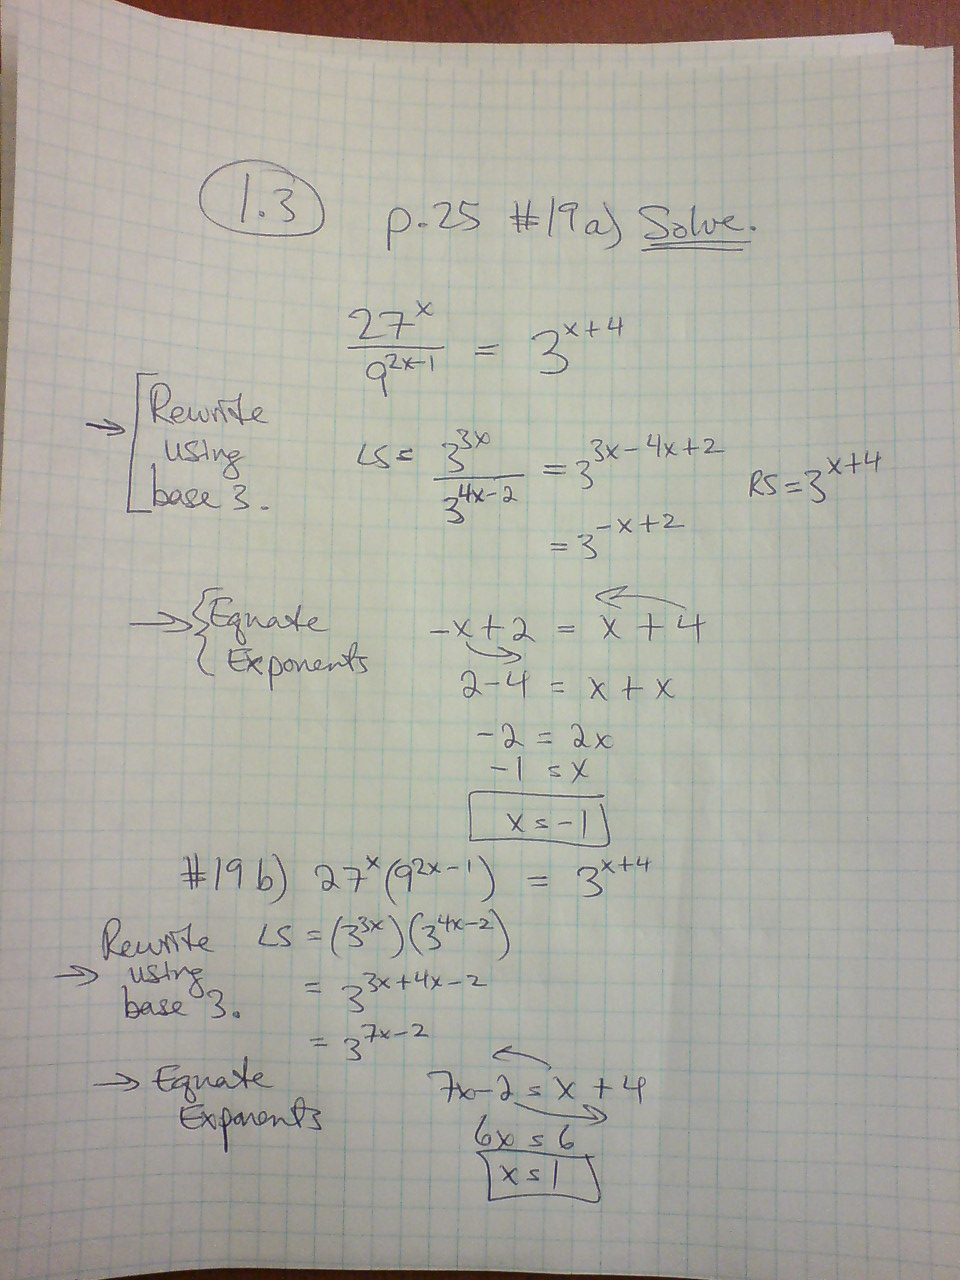 1.3 p.25 #19a) Solve.
27^x / 9^(2x-1) = 3^(x+4)
→ [Rewrite
using
base 3.
LS = 3^(3x) / 3^(4x-2) = 3^(3x-4x+2)
RS = 3^(x+4)
= 3^(-x+2)
→ {Equate
Exponents
-x+2 = x+4
2-4 = x+x
-2 = 2x
-1 = x
x = -1
#19 b) 27^x(9^(2x-1)) = 3^(x+4)
→ Rewrite
using
base 3.
LS = (3^(3x))(3^(4x-2))
= 3^(3x+4x-2)
= 3^(7x-2)
→ Equate
Exponents
7x-2 = x+4
6x = 6
x = 1